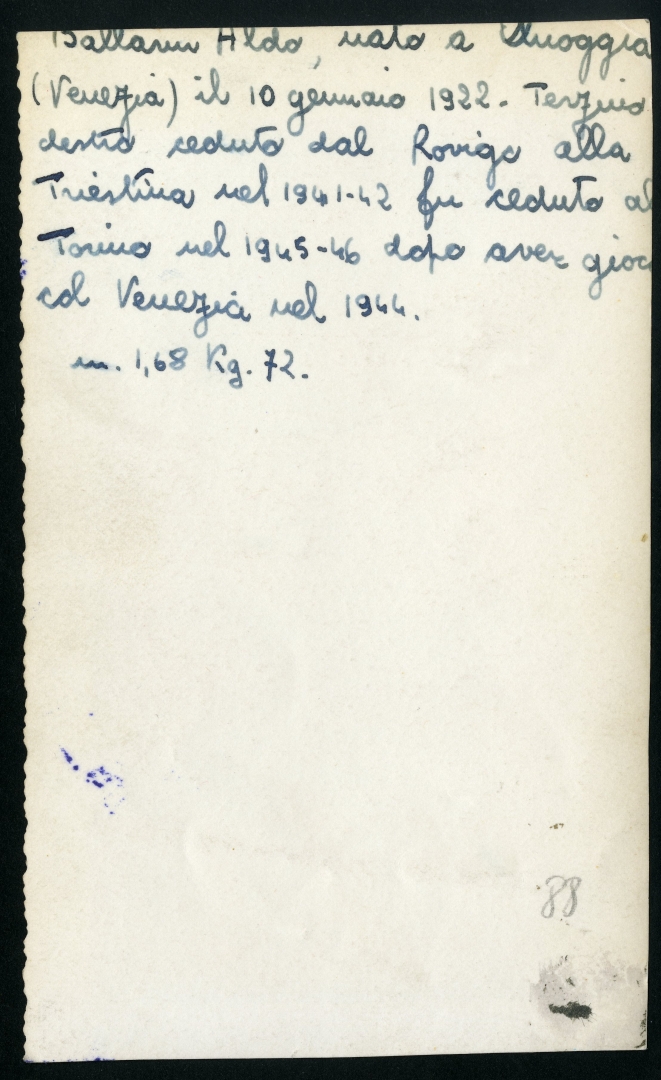 Ballarin Aldo, nato a Chioggia
(Venezia) il 10 gennaio 1922. Terzino
destro ceduto dal Rovigo alla
Triestina nel 1941-42 fu ceduto al
Torino nel 1945-46 dopo aver gioc
col Venezia nel 1944.
m. 1,68 Kg. 72.
88